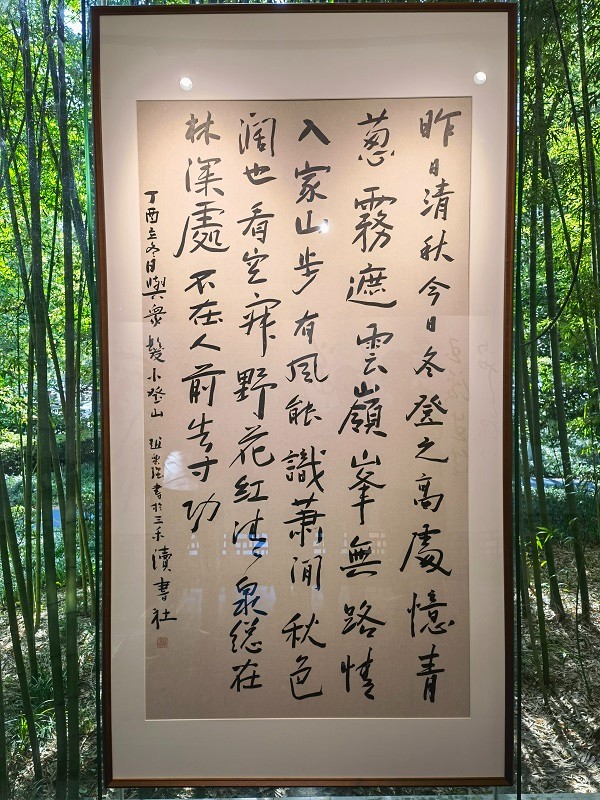 昨日清秋今日冬登之高處憶青
蔥霧遮雲嶺峯無路情
入家山步有風能識蕭閒秋色
阔也看空寂野花紅清泉總在
林深處不在人前告寸功
丁酉立冬日與衆髮小登山 趙 書於三禾瀆書社